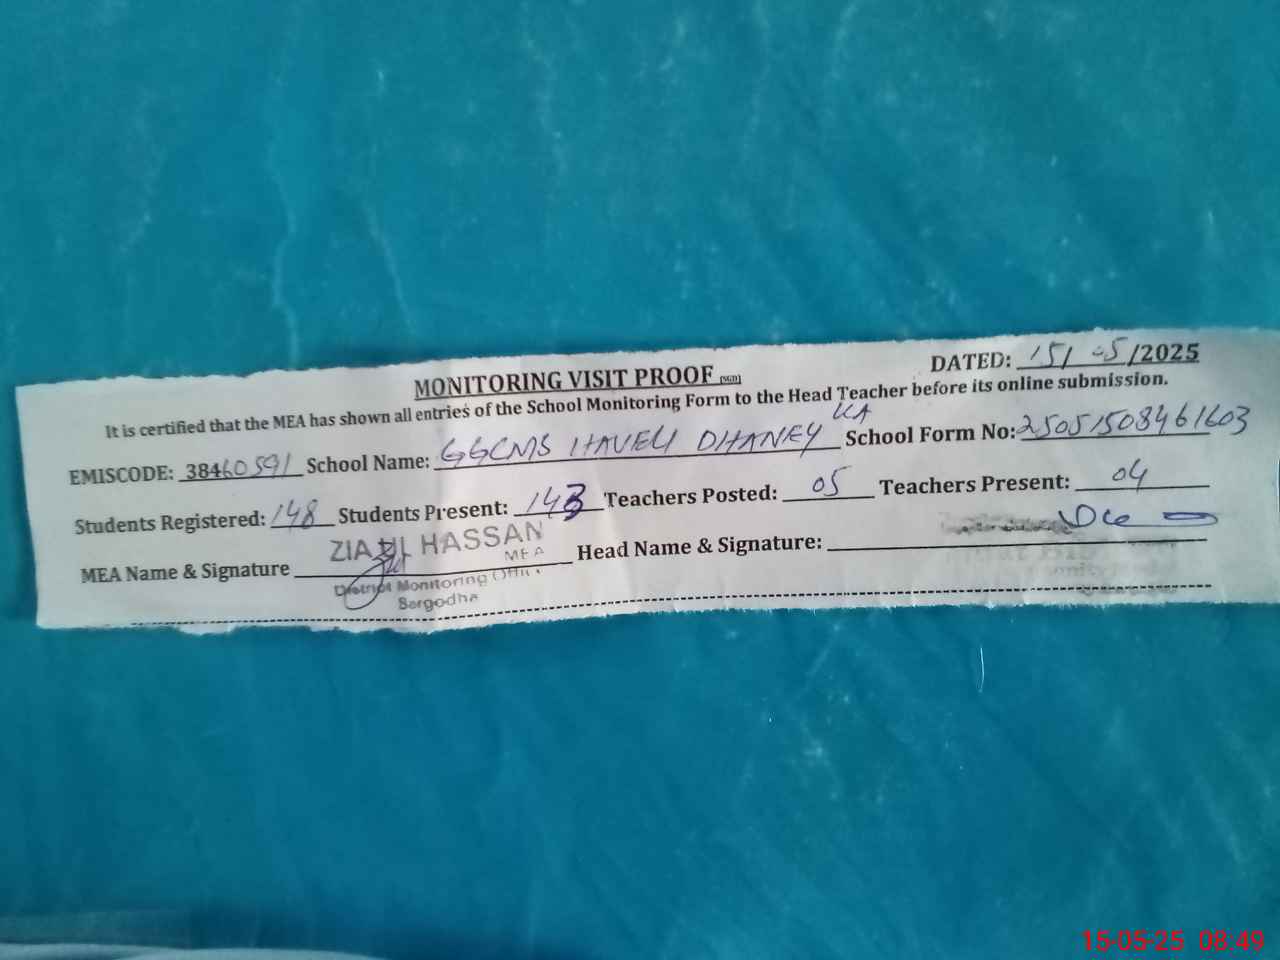 MONITORING VISIT PROOF (SGD)
DATED: 15/ 05/2025
It is certified that the MEA has shown all entries of the School Monitoring Form to the Head Teacher before its online submission.
EMISCODE: 38460591 School Name: GGCMS HAVELI DHANEY KA School Form No: 25051508461603
Students Registered: 148 Students Present: 143 Teachers Posted: 05 Teachers Present: 04
MEA Name & Signature HASSAN Head Name & Signature:
MEA
District Monitoring Office
Sargodha
15-05-25 08:49